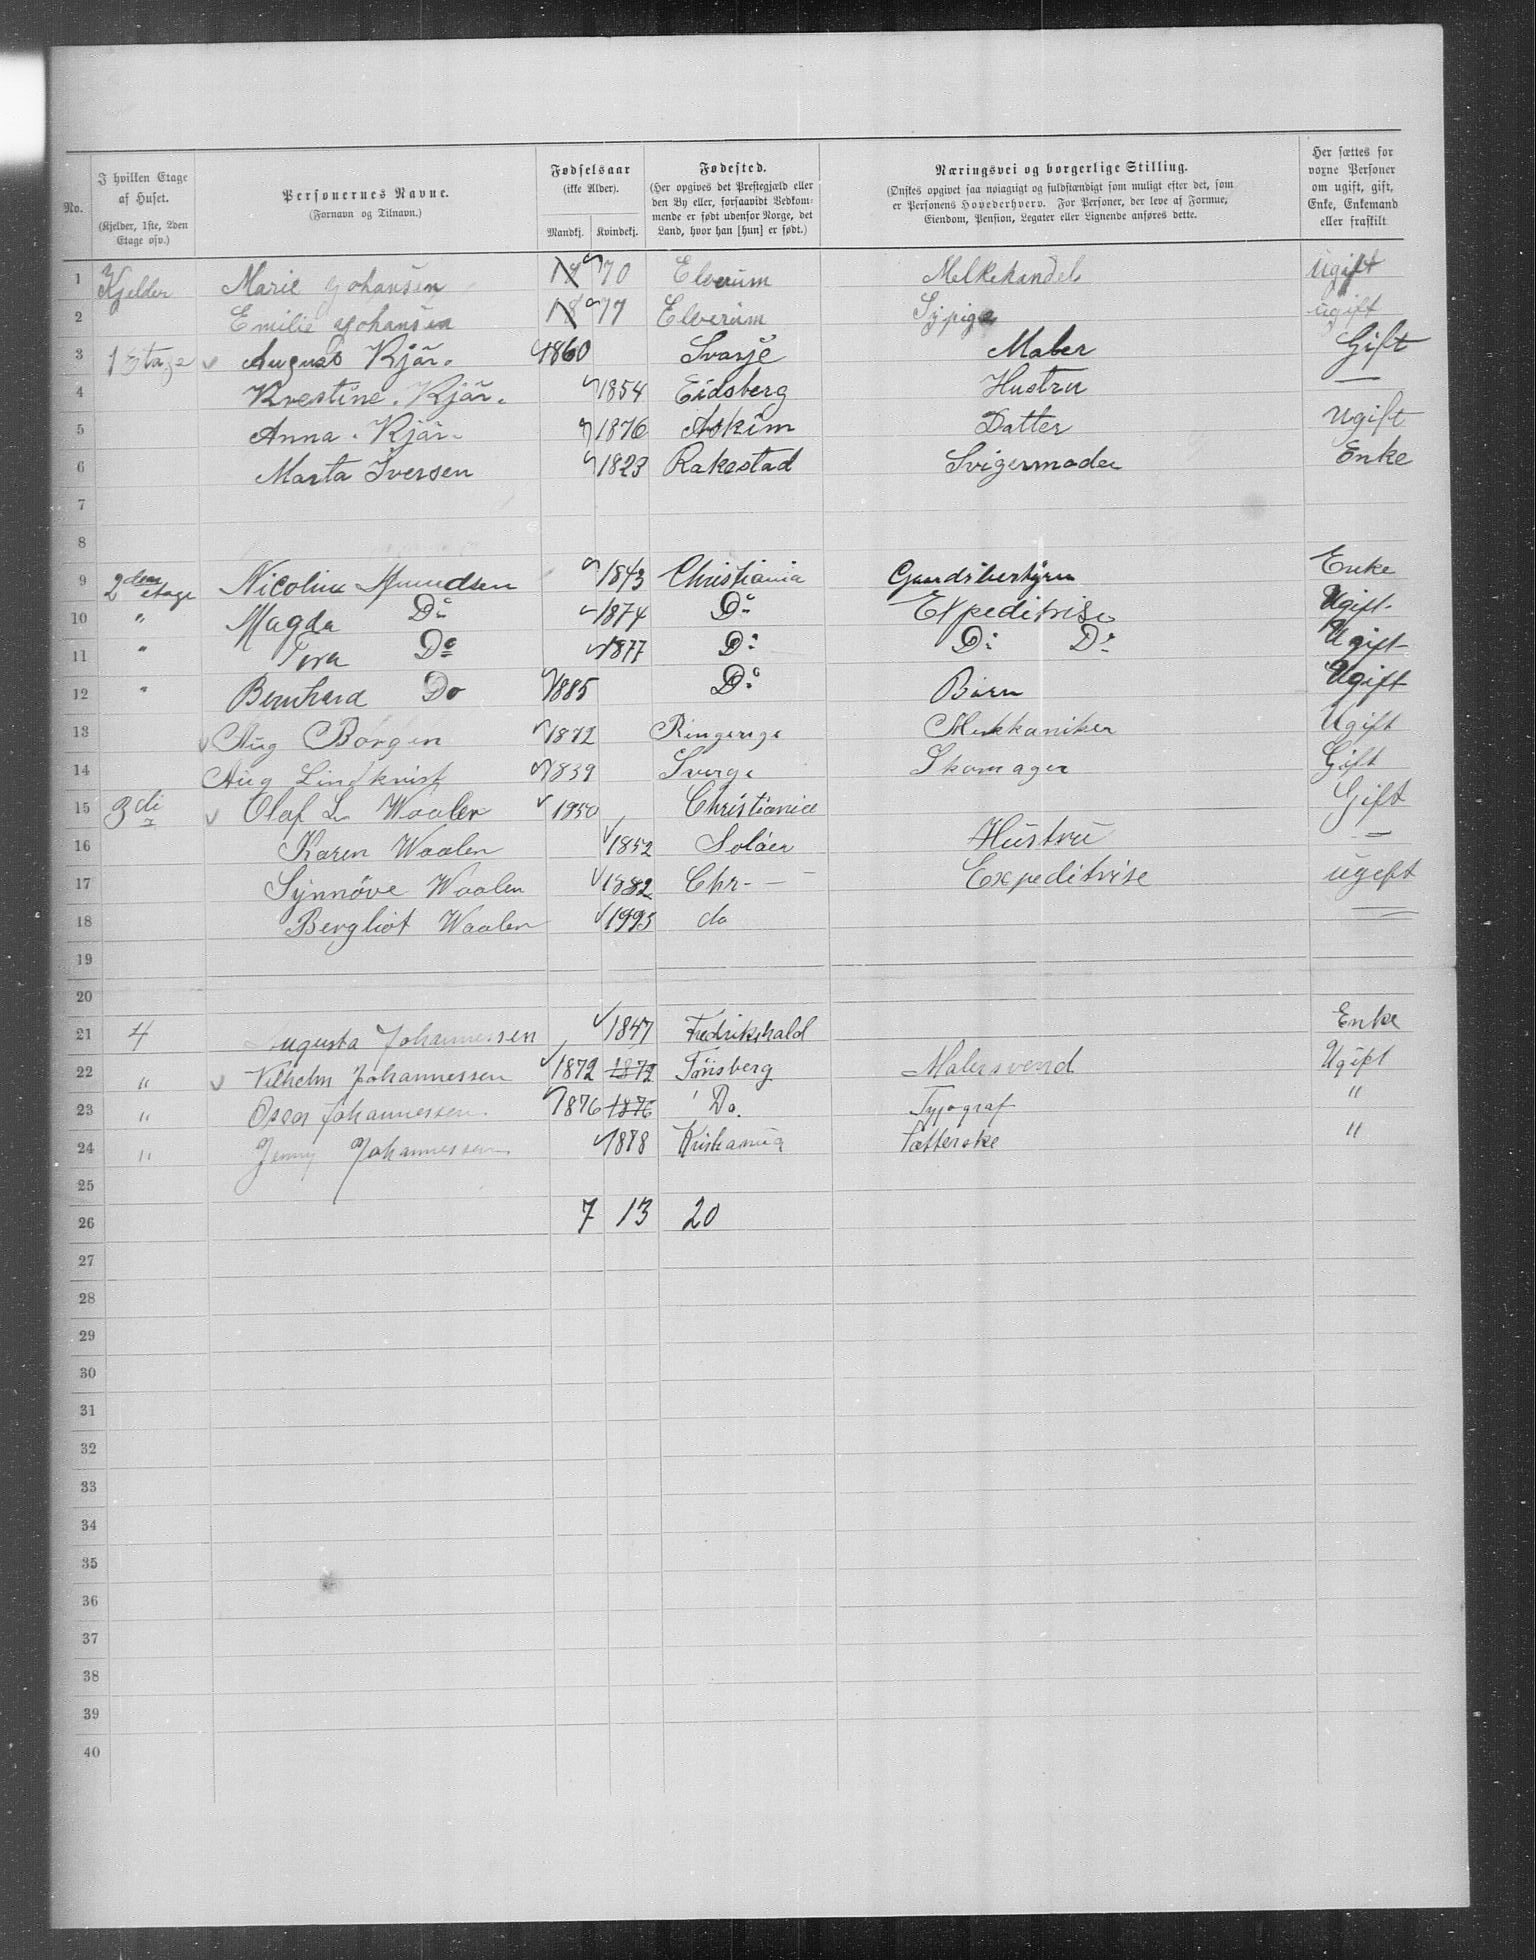 No. | I hvilken Etage af Huset. (Kjelder, 1ste, 2den Etage osv.) | Personernes Navne. (Fornavn og Tilnavn.) | Fødselsaar (ikke Alder). Mandkj. | Kvindekj. | Fødested. (Her opgives det Prestegjæld eller den By eller, forsaavidt Vedkommende er født udenfor Norge, det Land, hvor han [hun] er født.) | Næringsvei og borgerlige Stilling. (Ønskes opgivet saa nøiagtigt og fuldstændigt som muligt efter det, som er Personens Hovederhverv. For Personer, der leve af Formue, Eiendom, Pension, Legater eller Lignende anføres dette.) | Her sættes for voxne Personer om ugift, gift, Enke, Enkemand eller fraskilt
1 Kjelder Marie Johansen 18 70 Elverum Melkehandel ugift
2 Emilie Johansen 18 77 Elverum Sypige ugift
3 1 Etage August Kjär. 1860 Svarje Maler Gift
4 Krestine. Kjär. 1854 Eidsberg Hustru —
5 Anna. Kjär. 1876 Askim Datter Ugift
6 Marta Iversen 1823 Rakestad Svigermoder Enke
7
8
9 2den etage Nicoline Amundsen 1843 Christiania Gaardsbestyrer Enke
10 " Magda Do 1874 Do Expeditrise Ugift.
11 " Tora Do 1877 Do Do Do Ugift
12 " Bernhard Do 1885 Do Barn Ugift
13 Aug Borgen 1872 Ringerige Mekkaniker Ugift
14 Aug Lindkvist 1839 Sverge Skomager Gift
15 3di Olaf L Waaler 1850 Christiania Gift
16 Karen Waaler 1852 Soløer Hustru —
17 Synnöve Waaler 1882 Chr- — — Expeditrise ugift
18 Bergliot Waaler 1893 do —
19
20
21 4 Augusta Johannessen 1847 Fredrikshald Enke
22 " Vilhelm Johannessen 1872 1872 Tönsberg Malersvend Ugift
23 " Oscar Johannessen 1876 1876 Do. Typograf "
24 " Jenny Johannessen 1878 Kristiania Sætterske "
25
26 7 13 20
27
28
29
30
31
32
33
34
35
36
37
38
39
40